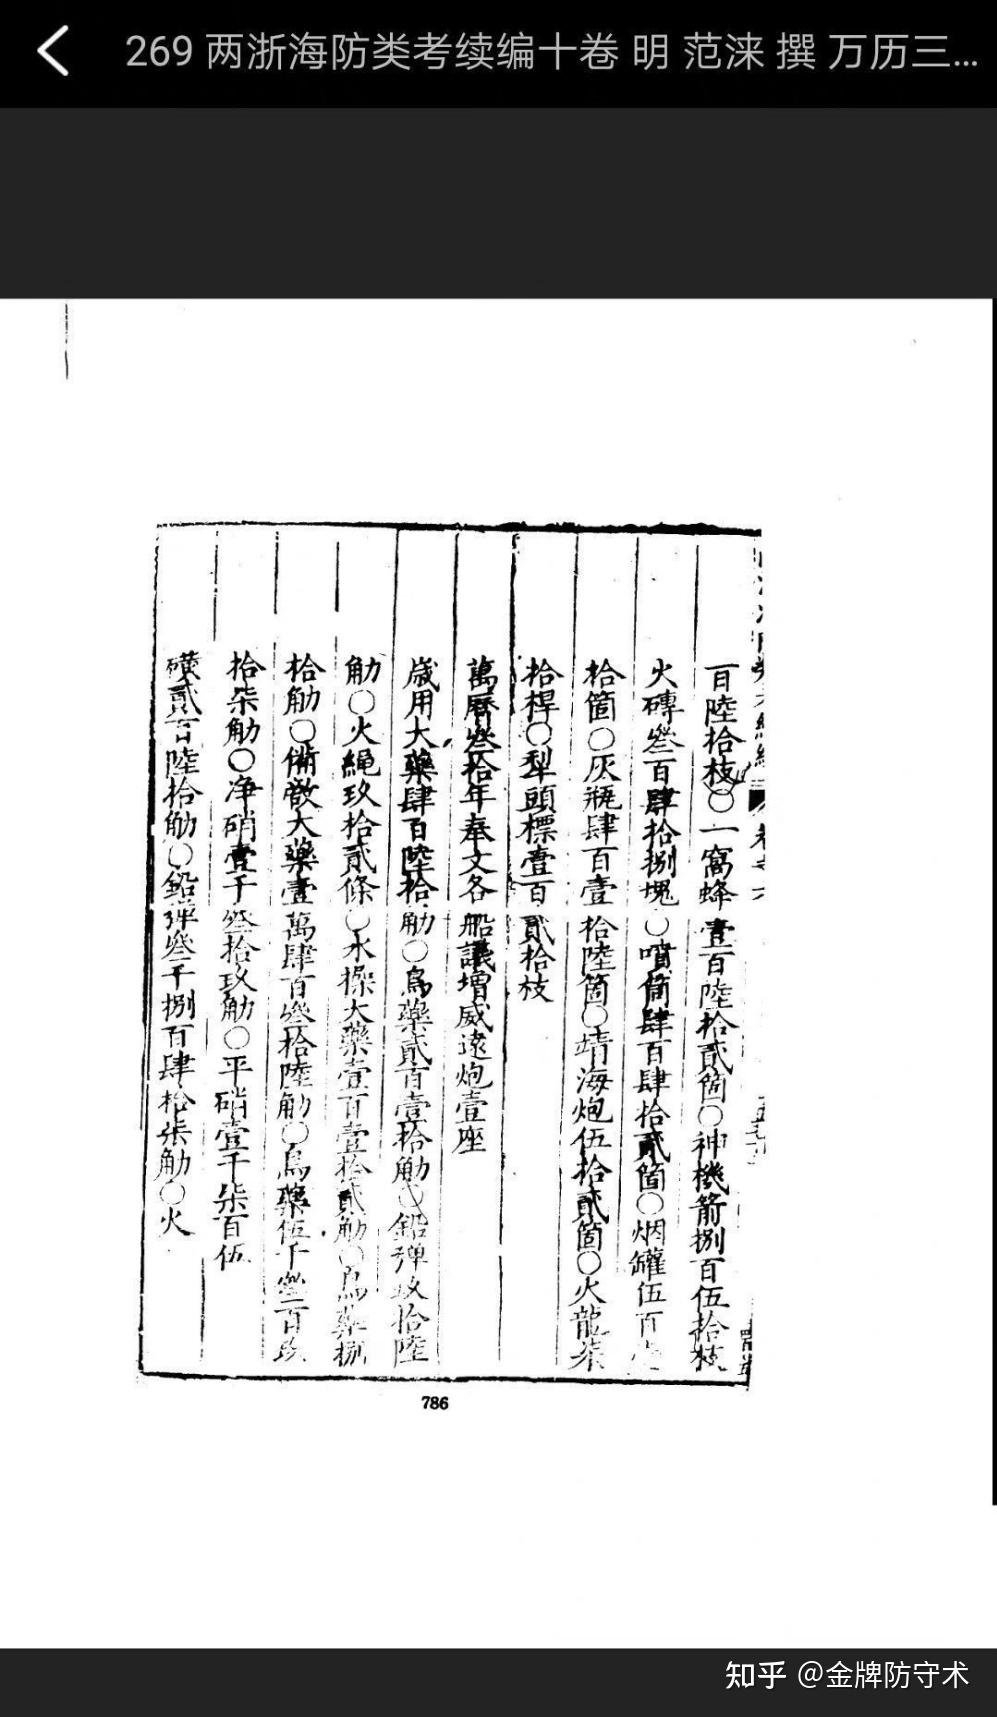 269 两浙海防类考续编十卷 明 范涞 撰 万历三...
百陸拾枝○一窩蜂壹百陸拾貳箇○神機箭捌百伍拾枝
火磚叁百肆拾捌塊○噴筒肆百肆拾貳箇○烟罐伍百
拾箇○灰瓶肆百壹拾陸箇○靖海炮伍拾貳箇○火龍柒
拾桿○犁頭標壹百貳拾枝
萬曆叁拾年奉文各船議增威遠炮壹座
歲用大藥肆百陸拾觔○鳥藥貳百壹拾觔○鉛彈玖拾陸
觔○火繩玖拾貳條○水操大藥壹百壹拾貳觔○鳥藥捌
拾觔○備敵大藥壹萬肆百叁拾陸觔○鳥藥伍千叁百玖
拾柒觔○净硝壹千叁拾玖觔○平硝壹千柒百伍
磺貳百陸拾觔○鉛彈叁千捌百肆拾柒觔○火
786
知乎 @金牌防守术